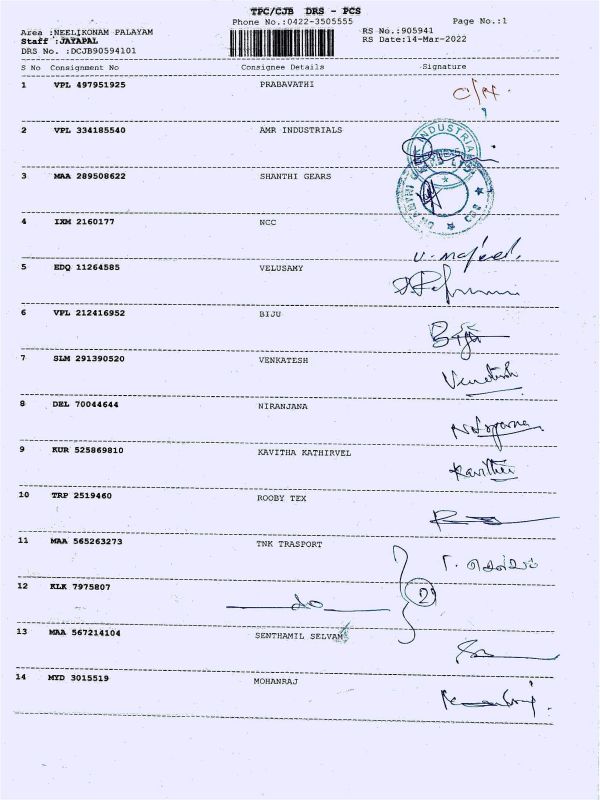 TPC/CJB DRS - PCS
Phone No.:0422-3505555
Page No.:1
Area :NEELIKONAM PALAYAM
RS No.:905941
Staff :JAYAPAL
RS Date:14-Mar-2022
DRS No. :DCJB90594101
S No Consignment No Consignee Details Signature
1 VPL 497951925 PRABAVATHI
2 VPL 334185540 AMR INDUSTRIALS
3 MAA 289508622 SHANTHI GEARS
4 IXM 2160177 NCC
5 EDQ 11264585 VELUSAMY
6 VPL 212416952 BIJU
7 SLM 291390520 VENKATESH
8 DEL 70044644 NIRANJANA
9 KUR 525869810 KAVITHA KATHIRVEL
10 TRP 2519460 ROOBY TEX
11 MAA 565263273 TNK TRASPORT
12 KLK 7975807 do 2
13 MAA 567214104 SENTHAMIL SELVAM
14 MYD 3015519 MOHANRAJ